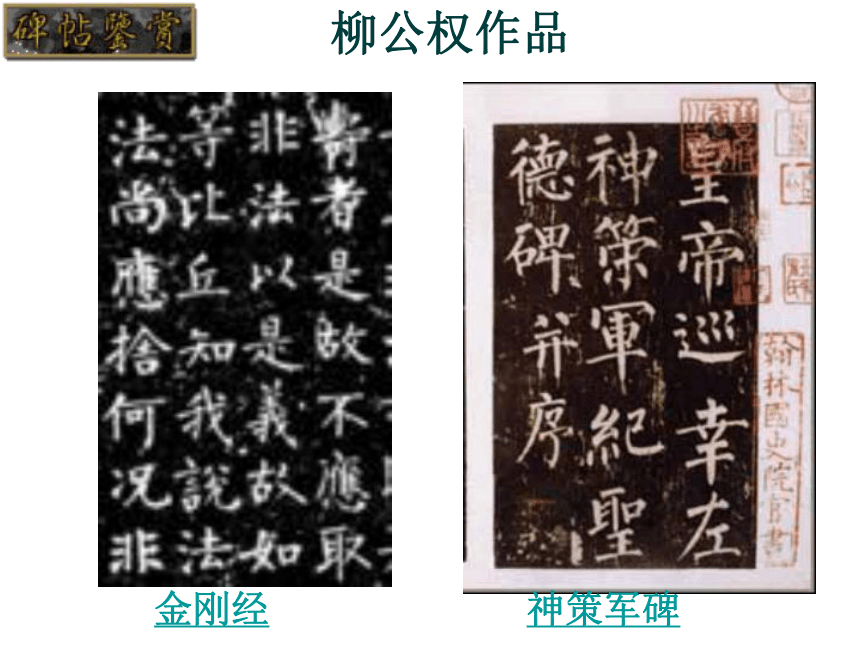 碑帖鑒賞
柳公权作品
壽者是故不應取
非法以是義故如
等比丘知我說法
法尚應捨何況非
皇帝巡幸左
神策軍紀聖
德碑并序
翰林國史院官書
金刚经
神策军碑